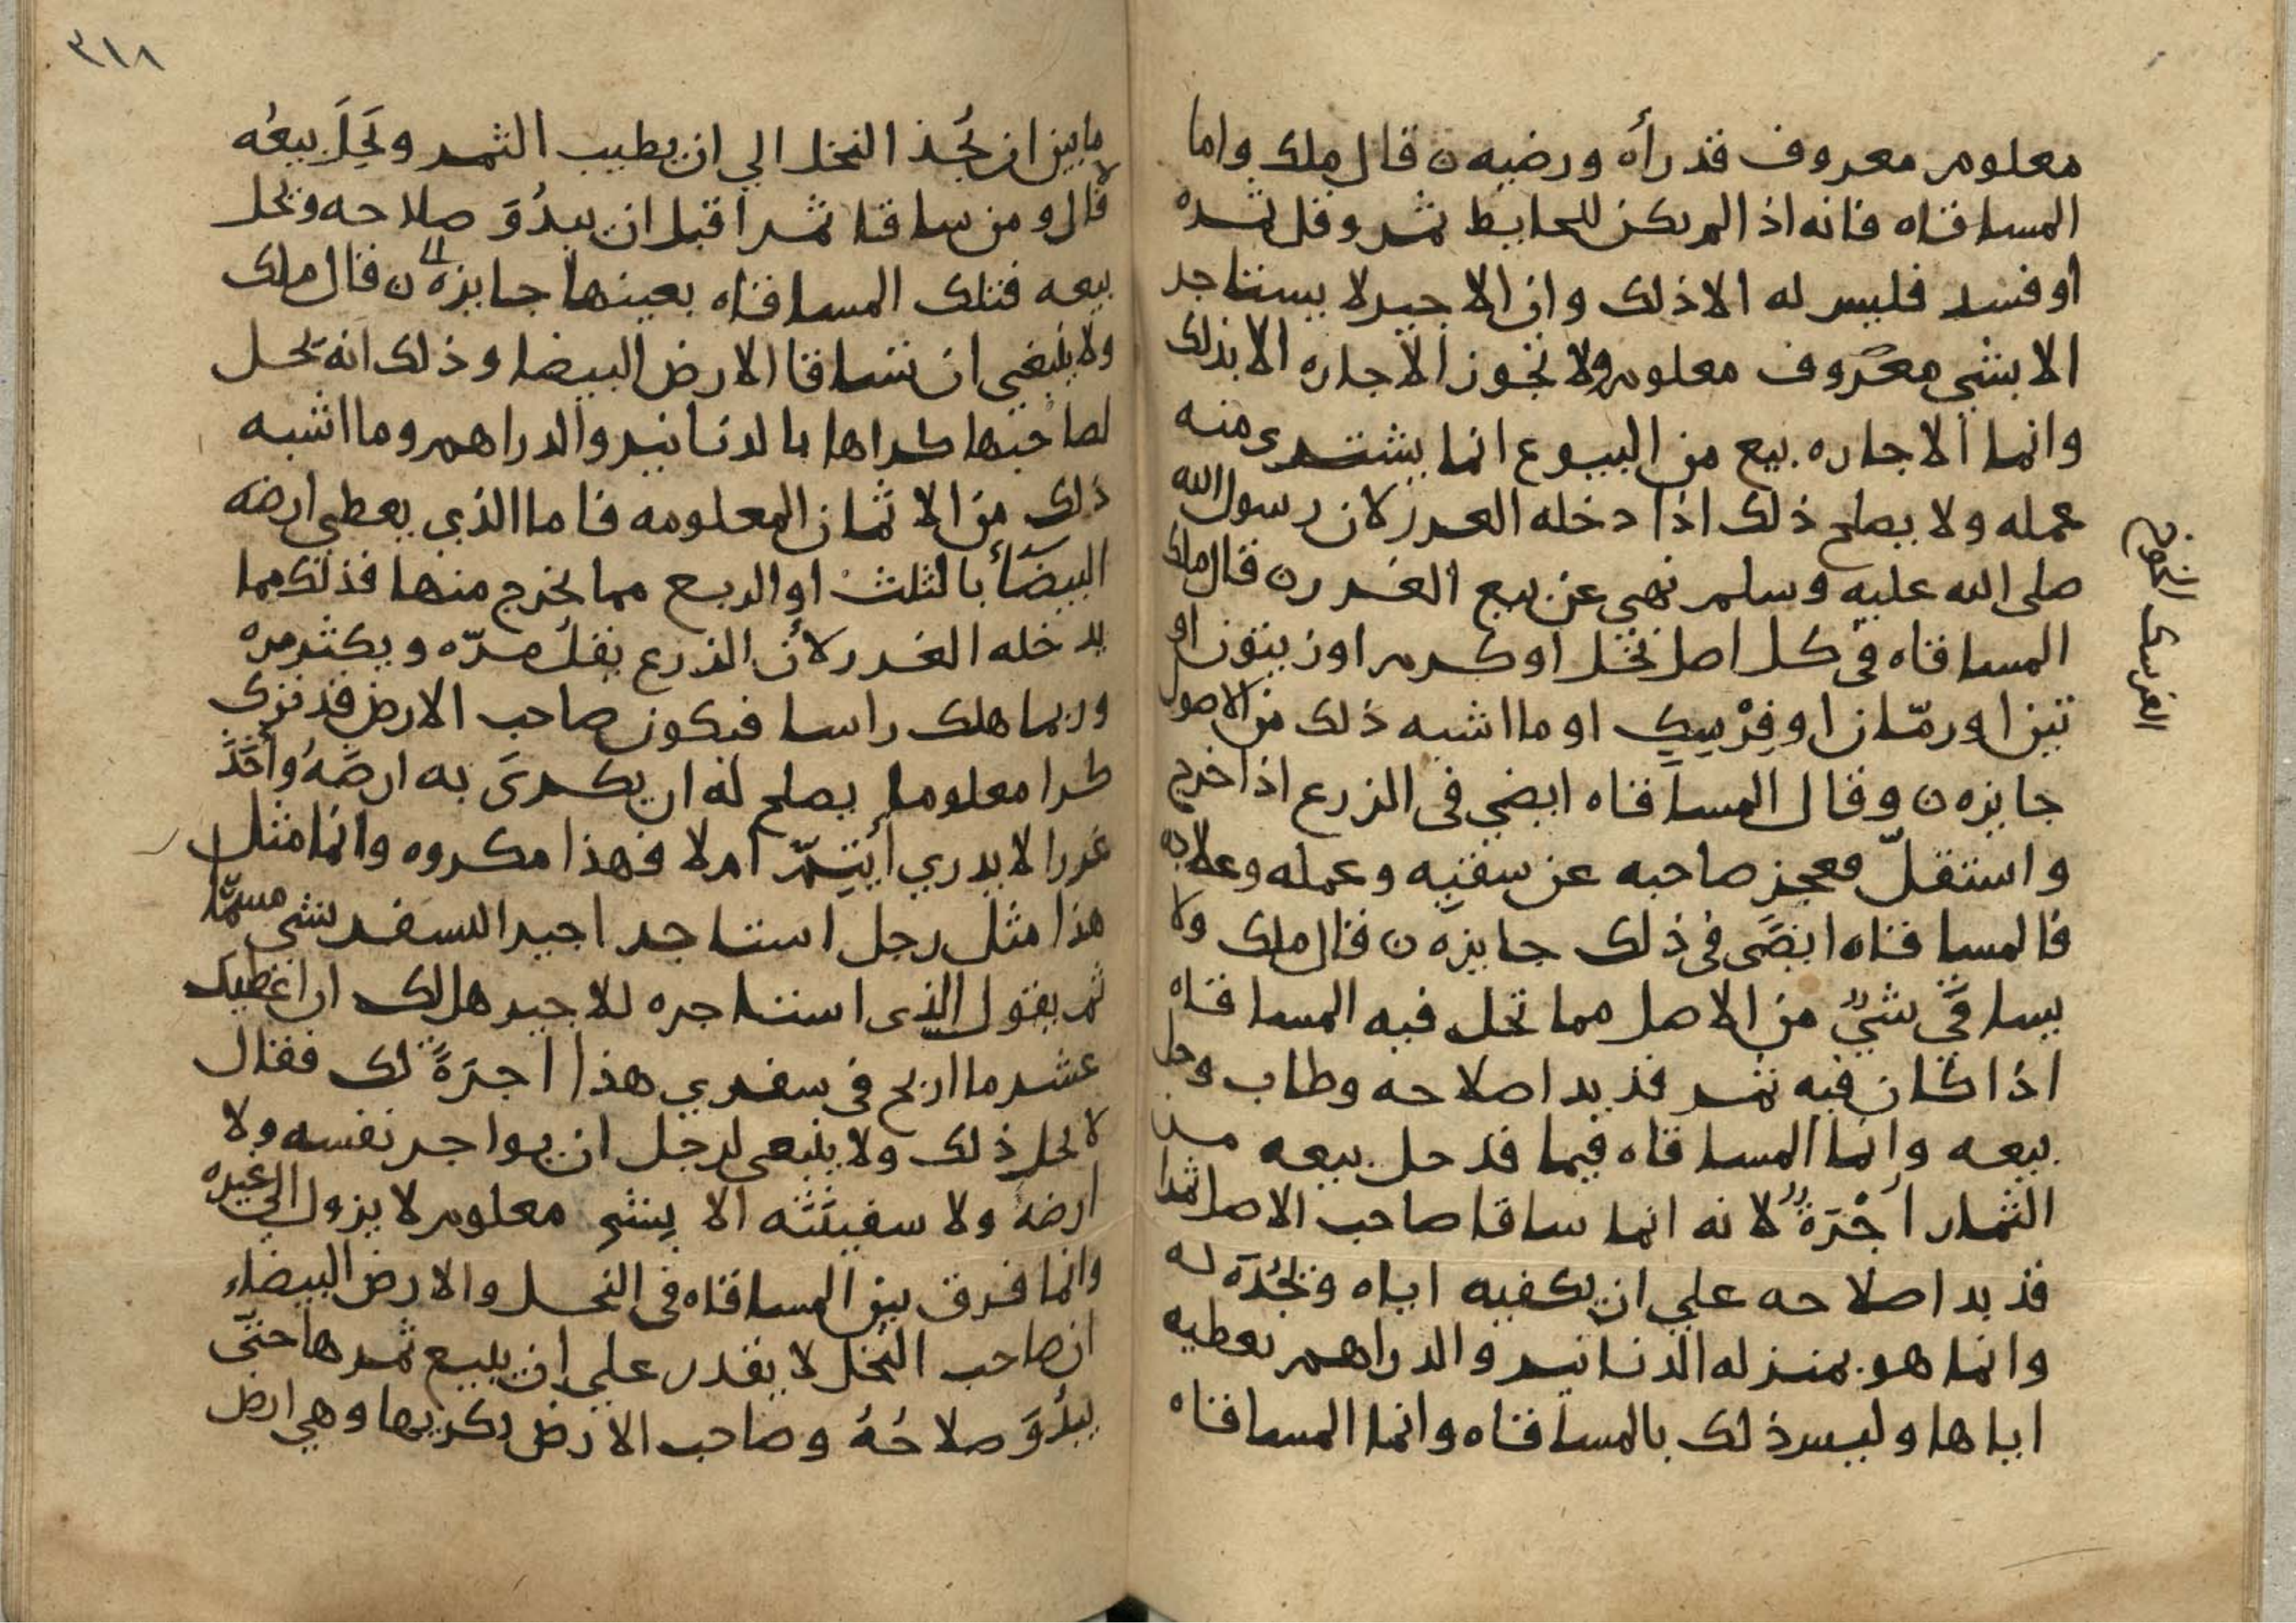 معلوم معروف قد رأه ورضيه ن قال ملك واما
المساقاه فانه اذا لم يكن للحايط ثمر وقل ثمره
او فسد فليس له الا ذلك وان الاجير لا يستاجر
الا بشي معروف معلوم ولا تجوز الاجاره الا بذلك
وانما الاجاره بيع من البيوع انما يشتري منه
عمله ولا يصلح ذلك اذا دخله الغرر لان رسول الله
صلى الله عليه وسلم نهي عن بيع الغرر ن قال ملك
المساقاه في كل اصل نخل او كرم او زيتون او
تين او رمّان او فِرْسِكٍ او ما اشبه ذلك من الاصول
جايزه ن وقال المساقاه ايضي في الزرع اذا خرج
واستقلّ فعجز صاحبه عن سقيِه وعمله وعلاجه
فالمساقاه ايضَى في ذلك جايزه ن قال ملك ولا
يساقَى شيٌ من الاصل مما تحل فيه المساقاه
اذا كان فيه ثمر قد بدا صلاحه وطاب وحل
بيعه وانما المساقاه فيما قد حل بيعه من
الثمار اجْرَةٌ لانه انما ساقا صاحب الاصل ثمرا
قد بدا صلاحه علي ان يكفيه اياه ويَجُذّه له
وانما هو بمنزله الدنانير والدراهم يعطيه
اياها وليس ذلك بالمساقاه وانما المساقاه
الفرسك الخوخ
٣١٨
ما بين ان يُجذ النخل الي ان يطيب الثمر ويَحِلَ بيعُه
قال ومن ساقا ثمرا قبل ان يبدُوَ صلاحه ويحل
بيعه فتلك المساقاه بعينها جايزه ن قال ملك
ولا ينبغي ان تساقا الارض البيضا وذلك انه يحل
لصاحبها كراها بالدنانير والدراهم وما اشبه
ذلك من الاثمان المعلومه فاما الذي يعطي ارضه
البيضَأ بالثلث او الربع مما يخرج منها فذلك مما
يدخله الغرر لانّ الزرع يقلُ مرّه ويكثر مره
وربما هلك راسا فيكون صاحب الارض قد ترك
كرا معلوما يصلح له ان يكرىَ به ارضَهُ وأخَذَ
غررا لا يدري أيتِمّ ام لا فهذا مكروه وانما مثل
هذا مثل رجل استاجر اجيرا لسفر بشي مسمًّا
ثم يقول الذي استاجره للاجير هل لك ان اعْطيك
عشر ما اربح في سفري هذا اجرَةً لك فقال
لا يحل ذلك ولا ينبغي لرجل ان يواجر نفسه ولا
ارضهُ ولا سفينَته الا بِشي معلوم لا يزول الي غيره
وانما فرق بين المساقاه في النخل والارض البيضاء
ان صاحب النخل لا يقدر علي ان يبيع ثمرها حتّي
يبدُوَ صلاحُهُ وصاحب الارض يكريها وهي ارض